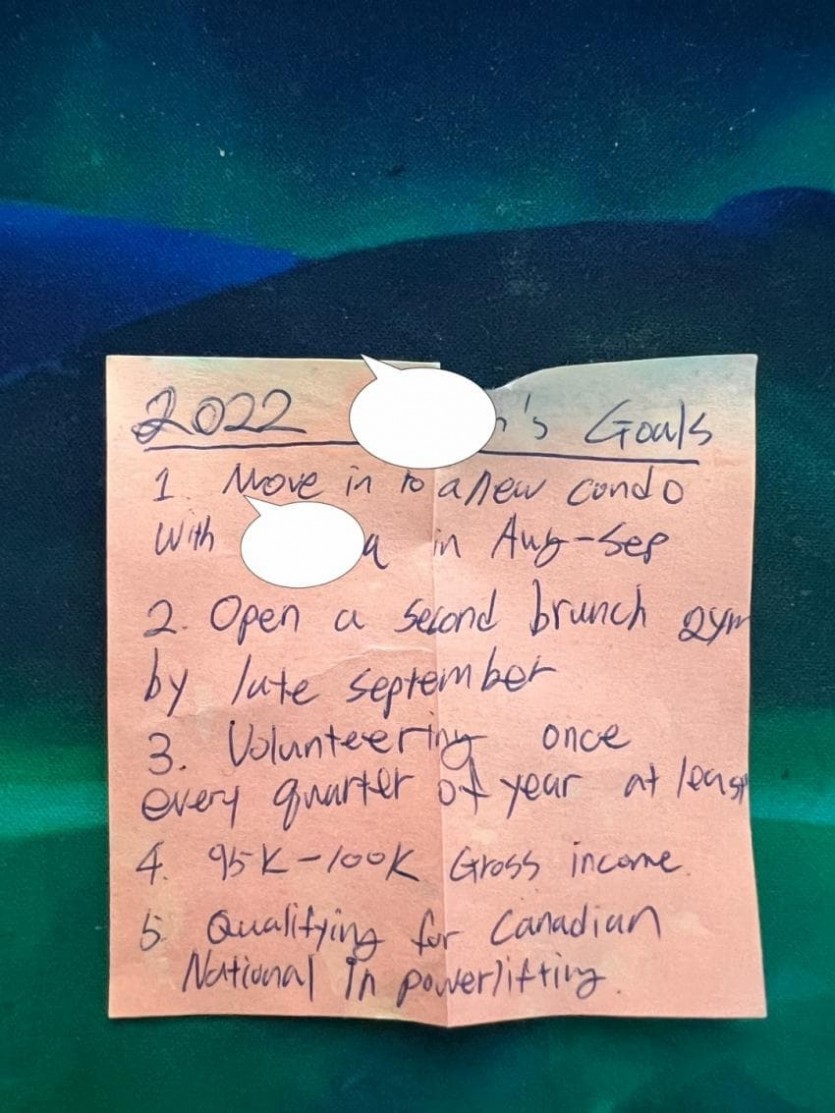 2022 n's Goals
1. Move in to a new condo
with a in Aug-Sep
2. Open a second brunch gym
by late september
3. Volunteering once
every quarter of year at least
4. 95K-100K Gross income.
5. Qualifying for Canadian
National in powerlifting.